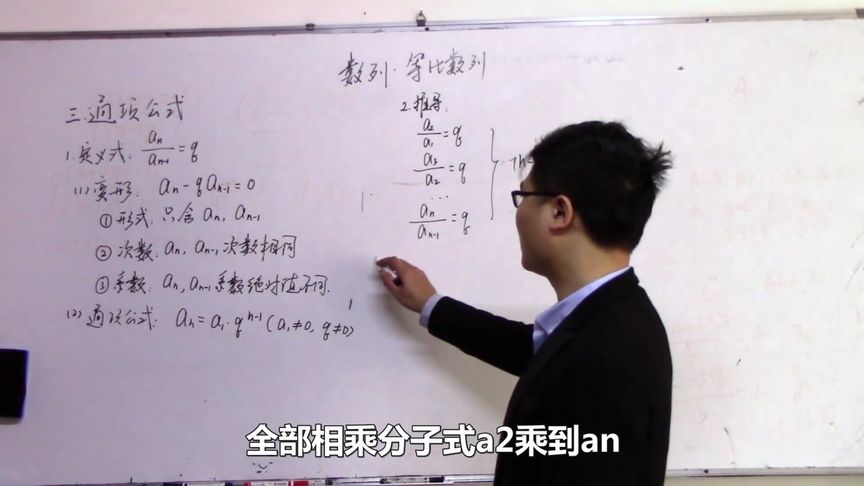 数列·等比数列
三.通项公式
1.定义式: aₙ/aₙ₋₁=q
(1)变形: aₙ-qaₙ₋₁=0
①形式: 只含aₙ, aₙ₋₁
②次数: aₙ, aₙ₋₁次数相同
③系数: aₙ, aₙ₋₁系数绝对值不同.
(2)通项公式: aₙ=a₁·qⁿ⁻¹(a₁≠0, q≠0)
2.推导:
a₂/a₁=q
a₃/a₂=q
...
aₙ/aₙ₋₁=q
全部相乘分子式a2乘到an